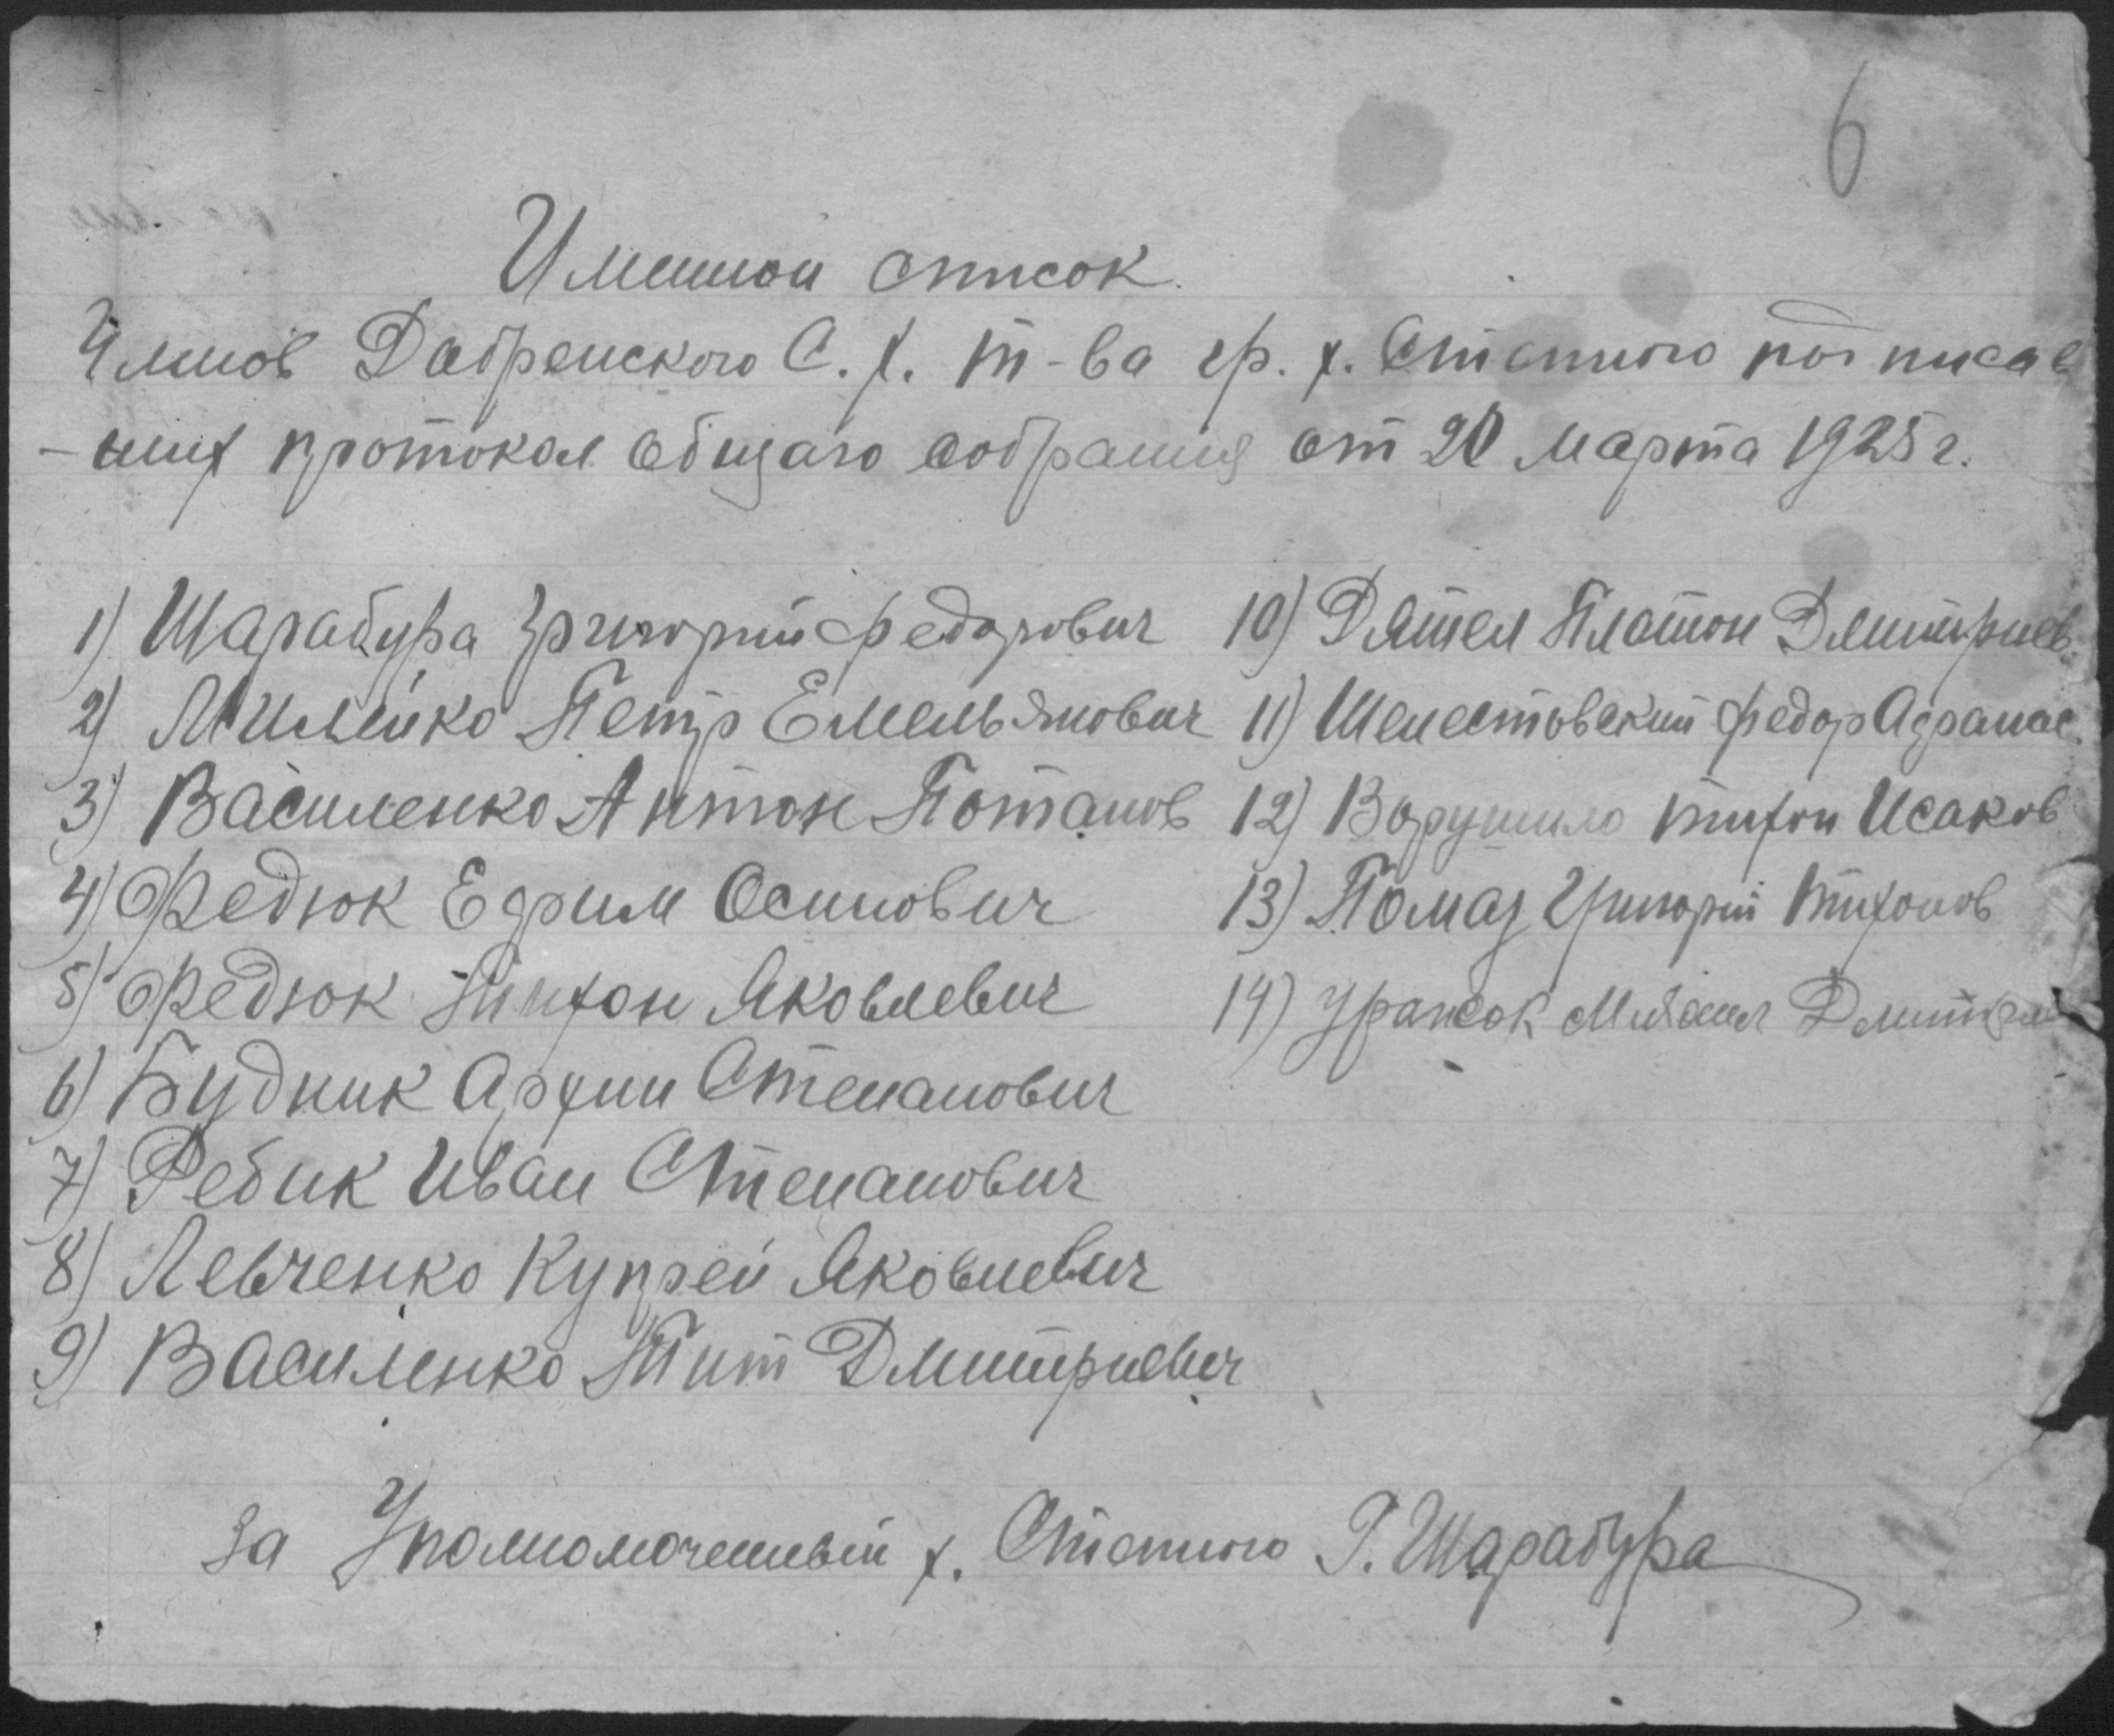 6
Именной список.
Членов Добренского С. х. т-ва гр. х. Степного подписав
-ших протокол общаго собрания от 20 марта 1925 г.
1) Шарабура Григорий Федорович
2) Милейко Петр Емельянович
3) Василенко Антон Потапов
4) Федюк Ефрим Осипович
5) Федюк Тихон Яковлевич
6) Будник Архип Степанович
7) Ребик Иван Степанович
8) Левченко Купрей Яковлевич
9) Василенко Тит Дмитриевич
10) Дятел Платон Дмитриев.
11) Шепестовский Федор Афанас.
12) Ворушило Тихон Исаков
13) Помаз Григорий Тихонов
14) Дмитрие
За Уполномоченный х. Степного Г. Шарабура